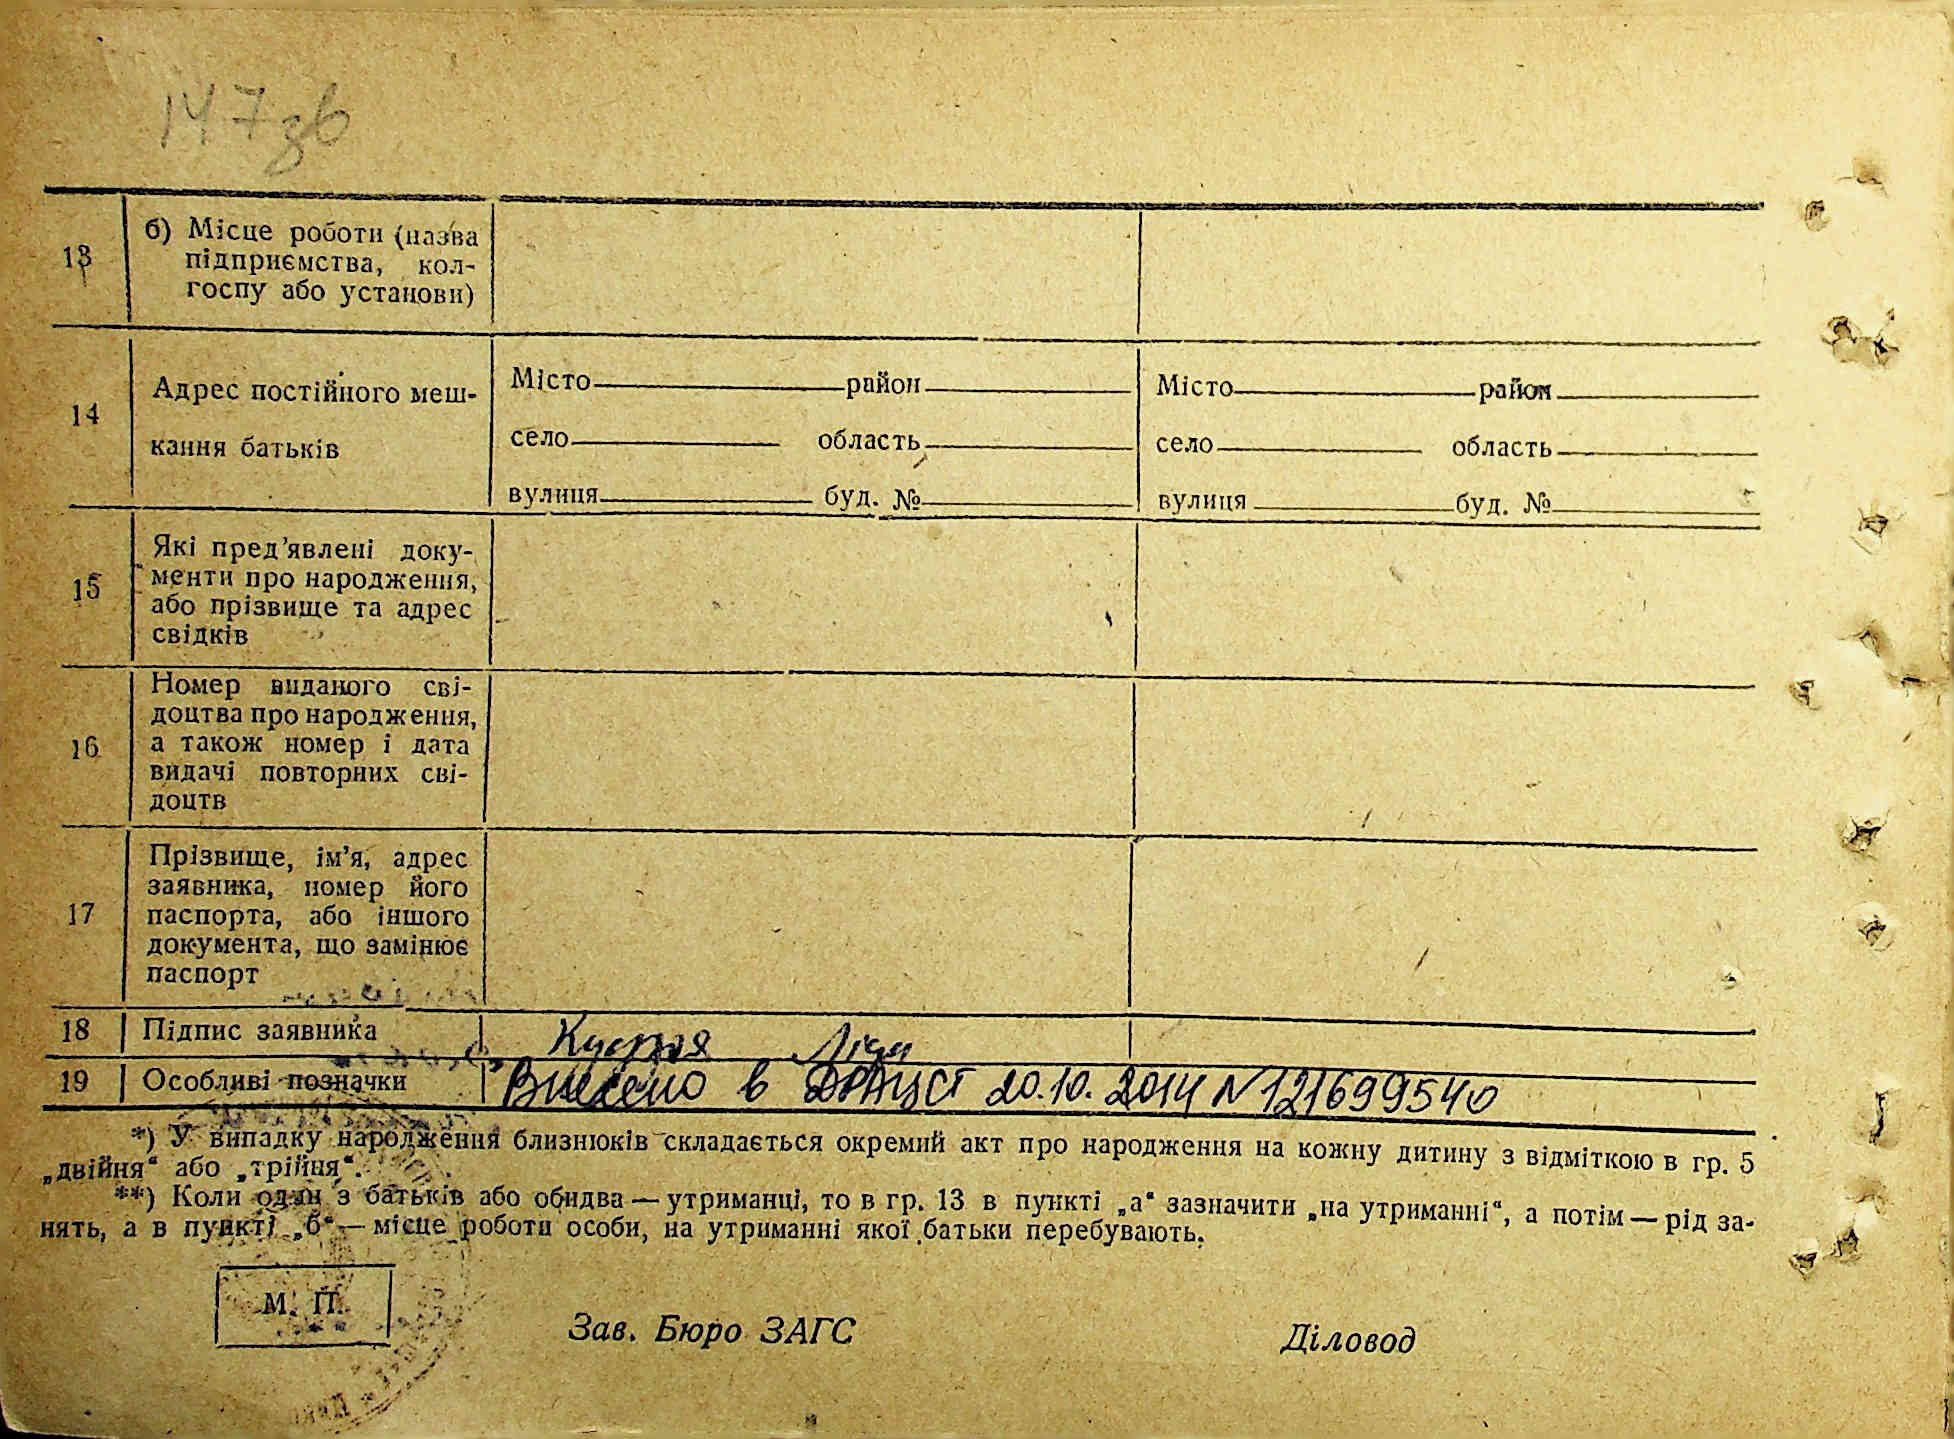 147 зв
13 б) Місце роботи (назва
підприємства, кол-
госпу або установи)
14 Адрес постійного меш-
кання батьків
Місто район
село область
вулиця буд. №
Місто район
село область
вулиця буд. №
15 Які пред’явлені доку-
менти про народження,
або прізвище та адрес
свідків
16 Номер виданого сві-
доцтва про народження,
а також номер і дата
видачі повторних сві-
доцтв
17 Прізвище, ім’я, адрес
заявника, номер його
паспорта, або іншого
документа, що замінює
паспорт
18 Підпис заявника
19 Особливі позначки Внесено в ДРАЦСГ 20.10.2014 N 121699540
*) У випадку народження близнюків складається окремий акт про народження на кожну дитину з відміткою в гр. 5
„двійня“ або „трійня“.
**) Коли один з батьків або обидва — утриманці, то в гр. 13 в пункті „а“ зазначити „на утриманні“, а потім — рід за-
нять, а в пункті „б“ — місце роботи особи, на утриманні якої батьки перебувають.
М. П.
Зав. Бюро ЗАГС Діловод